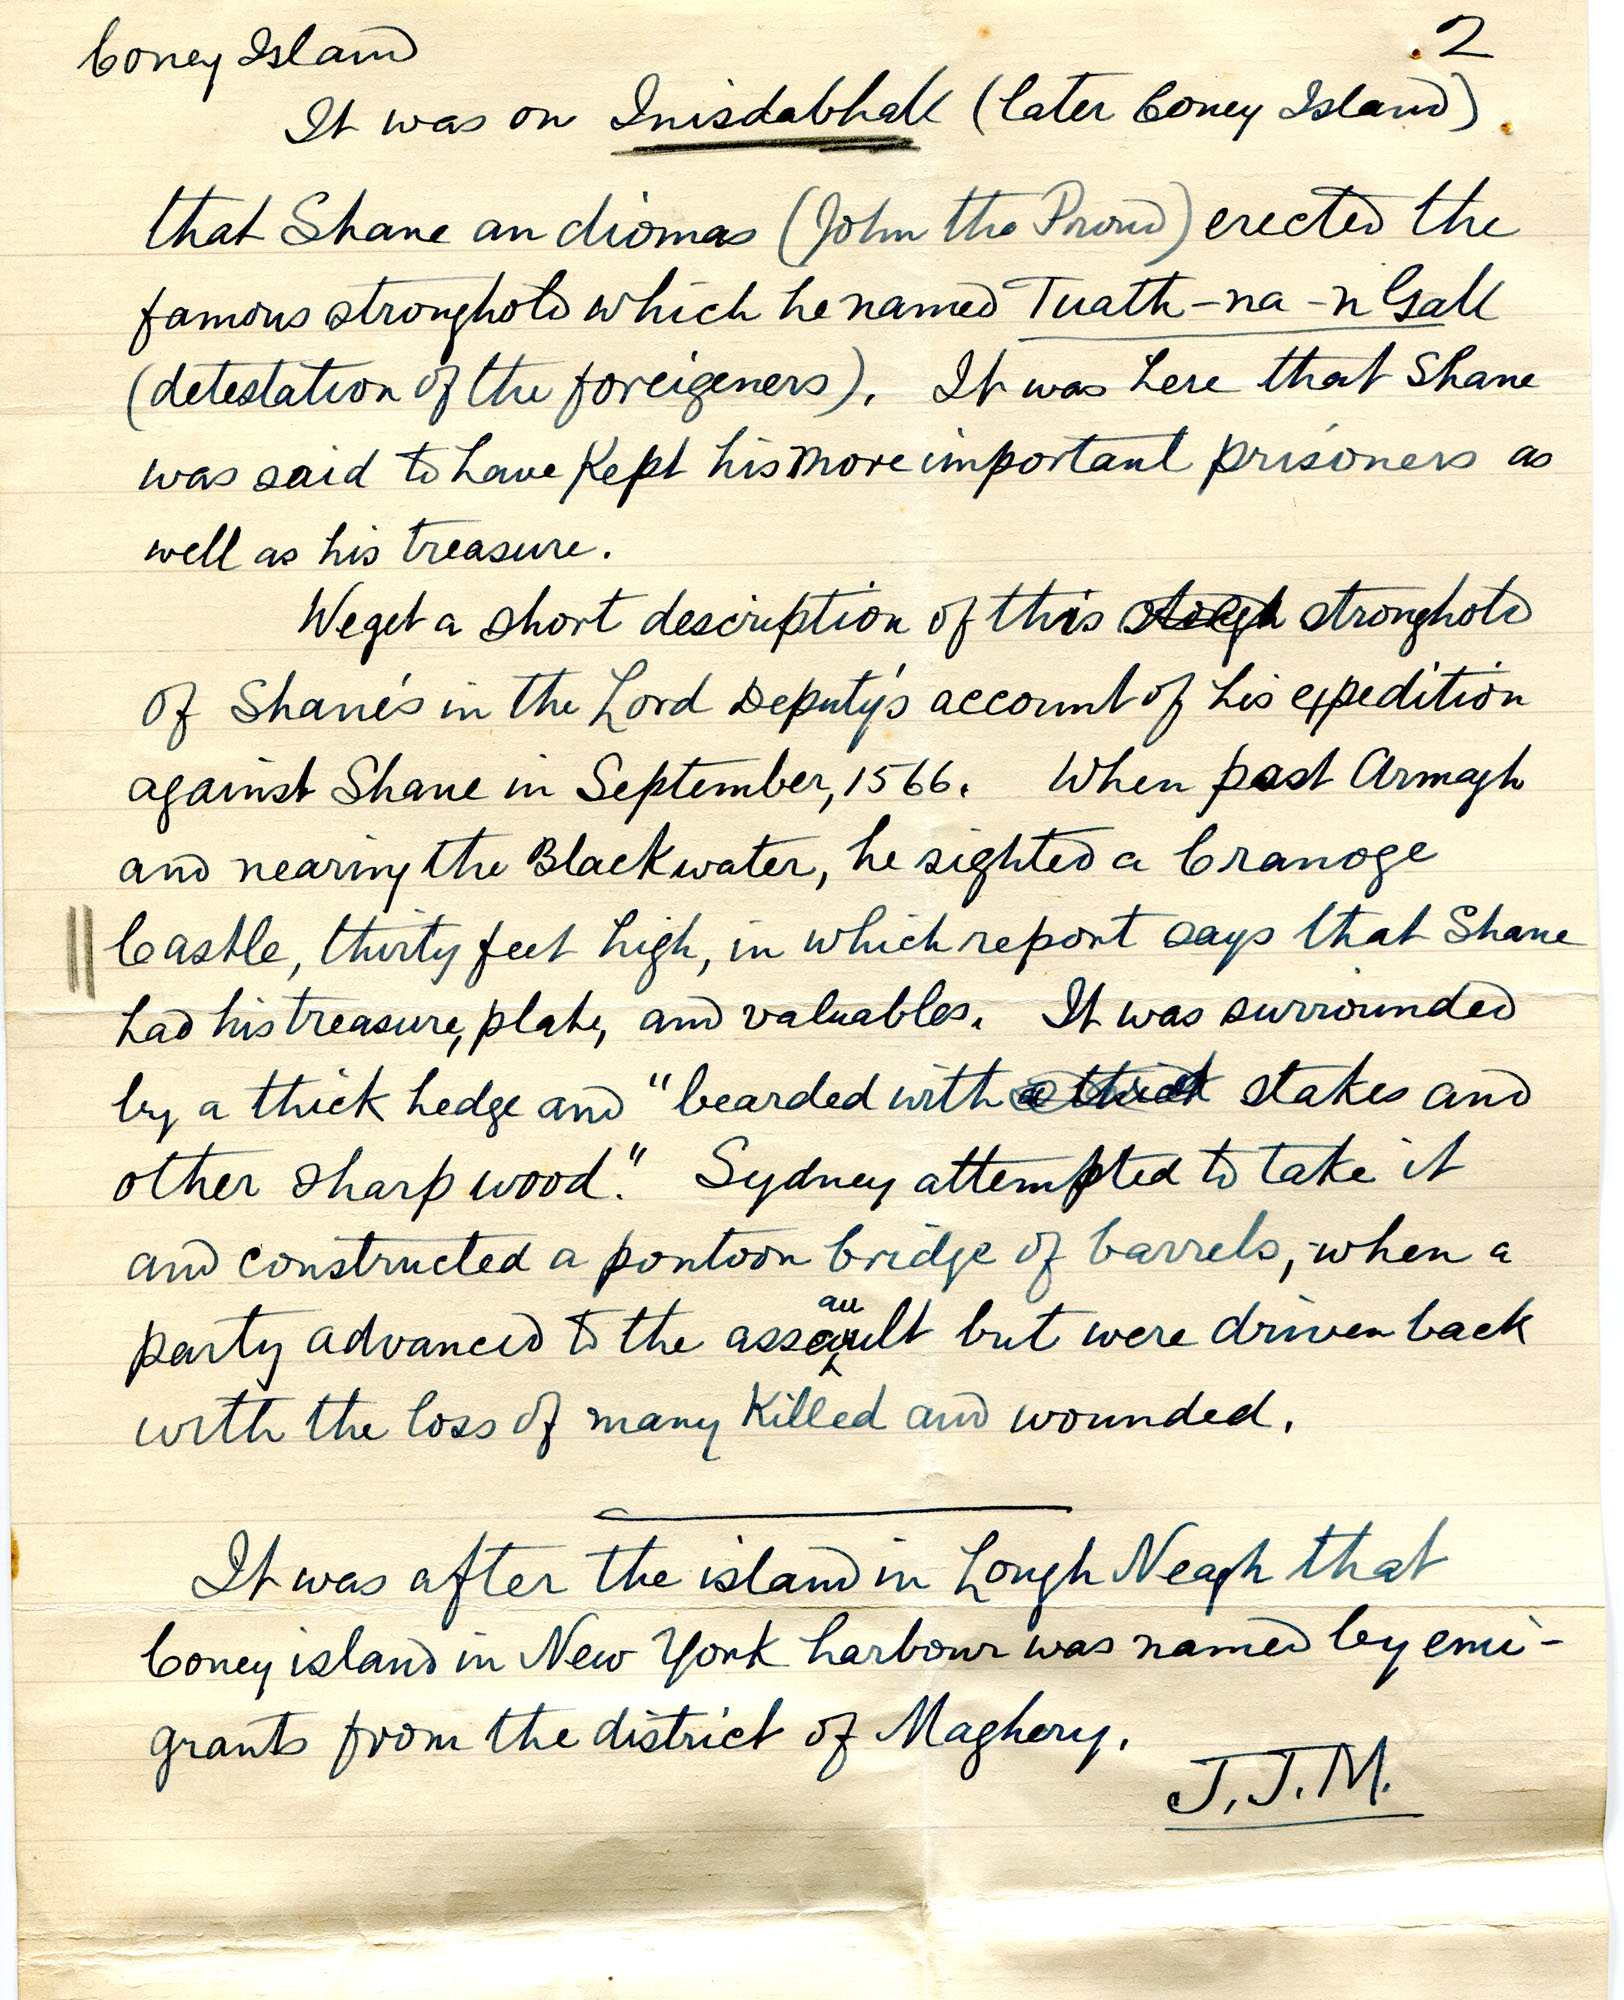 Coney Island
2
It was on Inisdabhall (later Coney Island)
that Shane an diomas (John the Proud) erected the
famous stronghold which he named Tuath-na-nGall
(detestation of the foreigeners). It was here that Shane
was said to have kept his more important prisoners as
well as his treasure.
We get a short description of this stronghold
of Shane's in the Lord Deputy's account of his expedition
against Shane in September, 1566. When past Armagh
and nearing the Blackwater, he sighted a Cranoge
Castle, thirty feet high, in which report says that Shane
had his treasure, plate, and valuables. It was surrounded
by a thick hedge and "bearded with a thick stakes and
other sharp wood." Sydney attempted to take it
and constructed a pontoon bridge of barrels, when a
au
party advanced to the assault but were driven back
with the loss of many killed and wounded.
It was after the island in Lough Neagh that
Coney island in New York harbour was named by emi-
grants from the district of Maghery.
J.J.M.